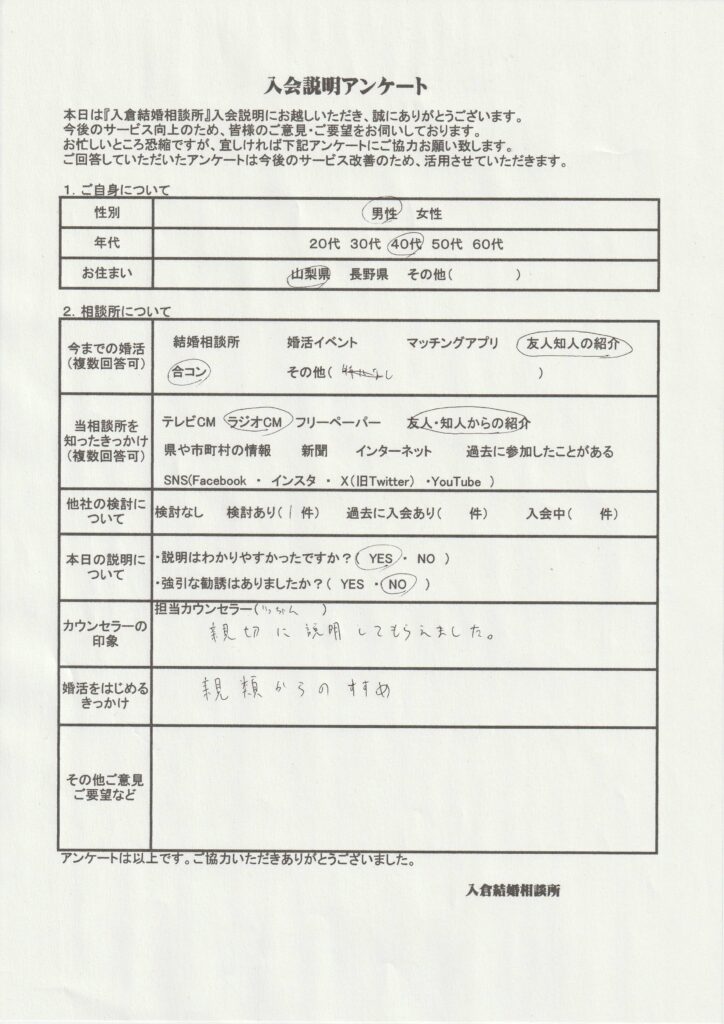 入会説明アンケート
本日は『入倉結婚相談所』入会説明にお越しいただき、誠にありがとうございます。
今後のサービス向上のため、皆様のご意見・ご要望をお伺いしております。
お忙しいところ恐縮ですが、宜しければ下記アンケートにご協力お願い致します。
ご回答していただいたアンケートは今後のサービス改善のため、活用させていただきます。
1. ご自身について
性別 男性 女性
年代 20代 30代 40代 50代 60代
お住まい 山梨県 長野県 その他( )
2. 相談所について
今までの婚活
(複数回答可)
結婚相談所 婚活イベント マッチングアプリ 友人知人の紹介
合コン その他( )
当相談所を
知ったきっかけ
(複数回答可)
テレビCM ラジオCM フリーペーパー 友人・知人からの紹介
県や市町村の情報 新聞 インターネット 過去に参加したことがある
SNS(Facebook ・ インスタ ・ X(旧Twitter) ・YouTube )
他社の検討に
ついて
検討なし 検討あり( 1 件) 過去に入会あり( 件) 入会中( 件)
本日の説明に
ついて
・説明はわかりやすかったですか?( YES ・ NO )
・強引な勧誘はありましたか?( YES ・ NO )
カウンセラーの
印象
担当カウンセラー( )
親切に説明してもらえました。
婚活をはじめる
きっかけ
親類からのすすめ
その他ご意見
ご要望など
アンケートは以上です。ご協力いただきありがとうございました。
入倉結婚相談所